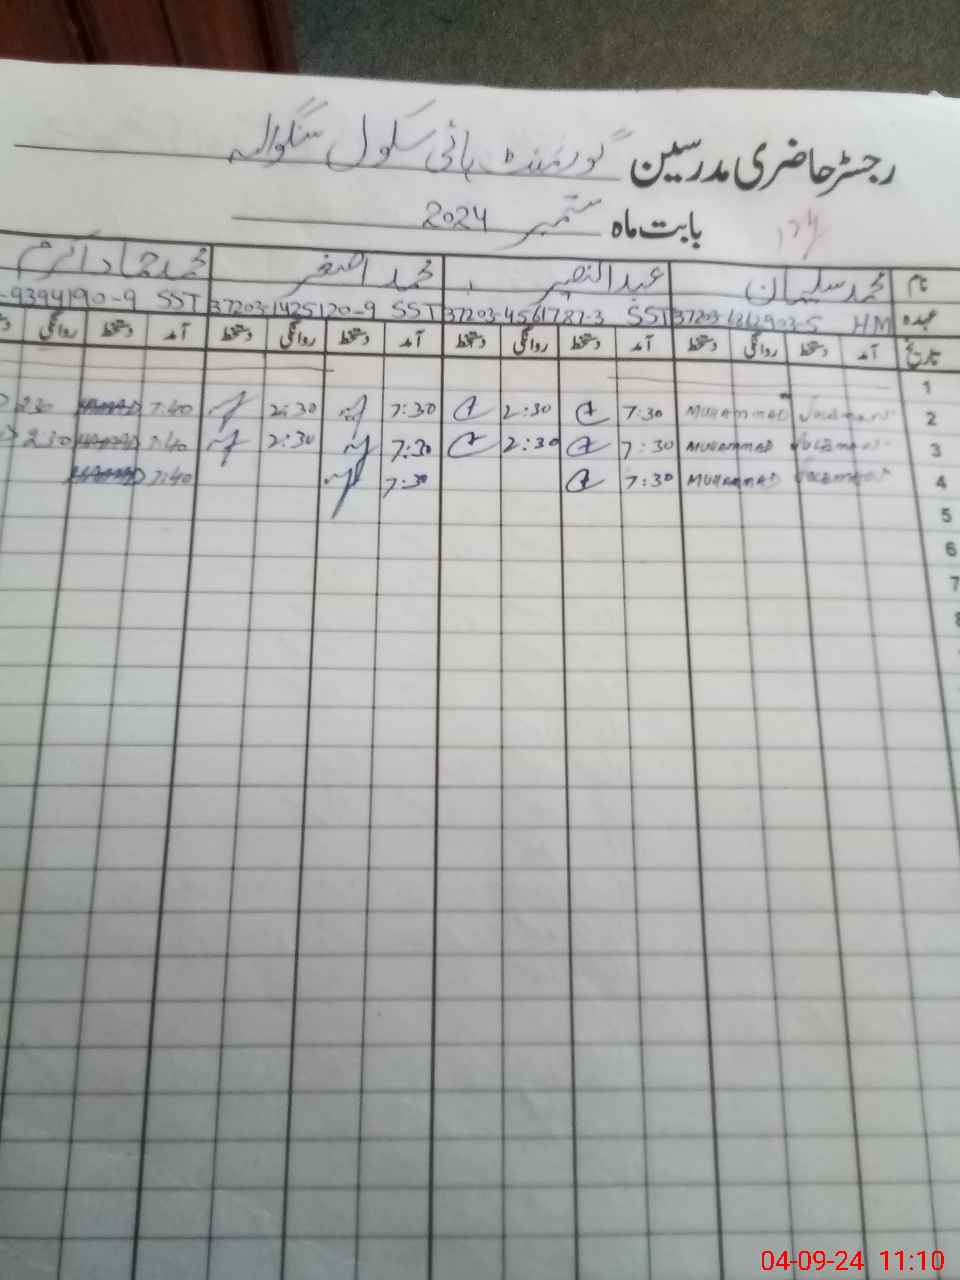 رجسٹر حاضری مدرسین گورنمنٹ ہائی سکول سگوالہ
بابت ماہ ستمبر 2024
نام محمد سلیمان عبدالنصیر محمد اصغر محمد حماد اکرم
عہدہ HM SST 37203-4561787-3 SST 37203-1425120-9 SST -9394190-9
تاریخ آمد دستخط روانگی دستخط آمد دستخط روانگی دستخط آمد دستخط روانگی دستخط آمد دستخط روانگی
1
2 MUHAMMAD 7:30 2:30 7:30 2:30 7:40 HAMAD 230
3 MUHAMMAD 7:30 2:30 7:30 2:30 7:40 HAMAD 230
4 MUHAMMAD 7:30 7:30 7:40 HAMAD
5
6
7
8
04-09-24 11:10